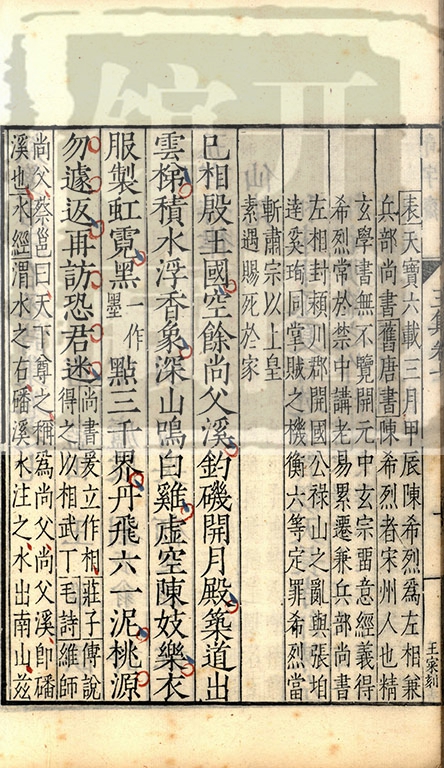 表天寶六載三月甲辰陳希烈爲左相兼
兵部尚書舊唐書陳希烈者宋州人也精
玄學書無不覽開元中玄宗畱意經義得
希烈常於禁中講老易累遷兼兵部尚書
左相封潁川郡開國公祿山之亂與張垍
達奚珣同掌賊之機衡六等定罪希烈當
斬肅宗以上皇
素遇賜死於家
已相殷王國空餘尚父溪釣磯開月殿築道出
雲梯積水浮香象深山鳴白雞虛空陳妓樂衣
服製虹霓黑一作墨點三千界丹飛六一泥桃源
勿遽返再訪恐君迷尚書爰立作相莊子傳說
得之以相武丁毛詩維師
尚父蔡邕曰天下尊之稱爲尚父尚父溪即磻
溪也水經渭水之右磻溪水注之水出南山茲
王寀刻